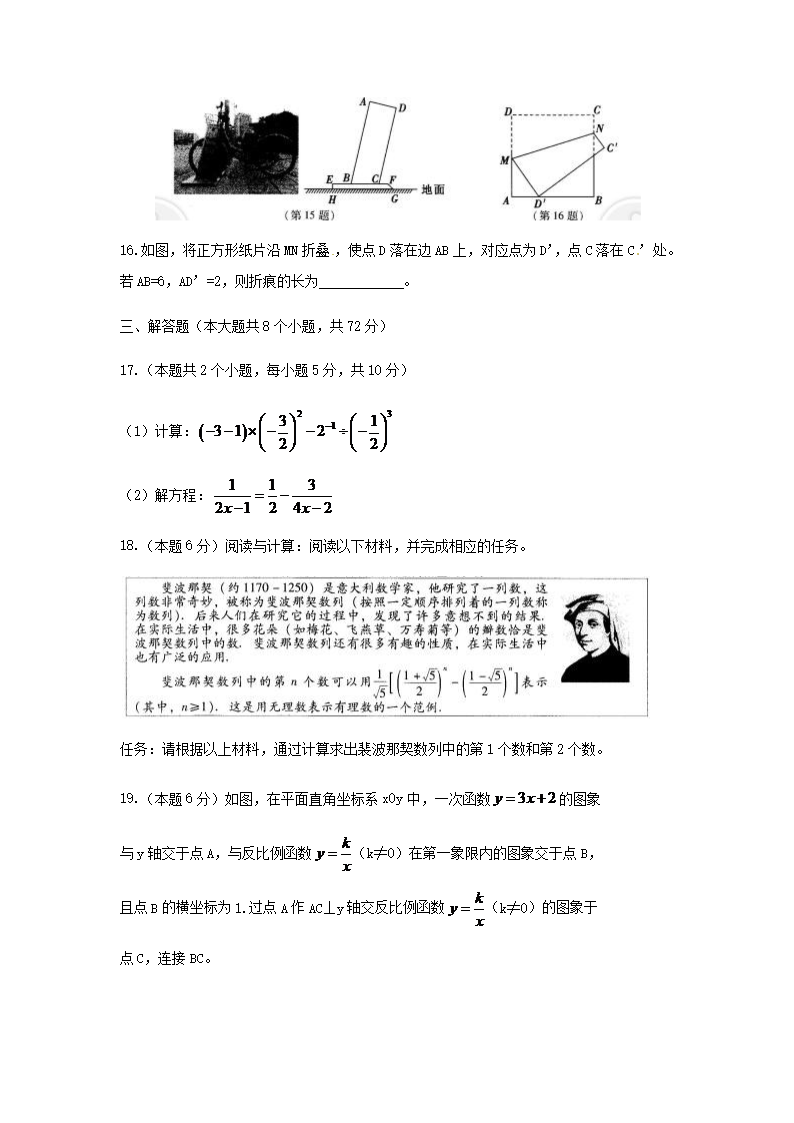 A D E B C F H G 地面
(第15题)
D C N C' M A D' B
(第16题)
16.如图,将正方形纸片沿MN折叠,使点D落在边AB上,对应点为D’,点C落在C’处。
若AB=6,AD’=2,则折痕的长为____________。
三、解答题(本大题共8个小题,共72分)
17.(本题共2个小题,每小题5分,共10分)
(1)计算:(-3-1)×(-3/2)²-2⁻¹÷(-1/2)³
(2)解方程:1/(2x-1)=1/2-3/(4x-2)
18.(本题6分)阅读与计算:阅读以下材料,并完成相应的任务。
斐波那契(约1170-1250)是意大利数学家,他研究了一列数,这
列数非常奇妙,被称为斐波那契数列(按照一定顺序排列着的一列数称
为数列).后来人们在研究它的过程中,发现了许多意想不到的结果.
在实际生活中,很多花朵(如梅花、飞燕草、万寿菊等)的瓣数恰是斐
波那契数列中的数.斐波那契数列还有很多有趣的性质,在实际生活中
也有广泛的应用.
斐波那契数列中的第n个数可以用1/√5[((1+√5)/2)ⁿ-((1-√5)/2)ⁿ]表示
(其中,n≥1).这是用无理数表示有理数的一个范例.
任务:请根据以上材料,通过计算求出裴波那契数列中的第1个数和第2个数。
19.(本题6分)如图,在平面直角坐标系xOy中,一次函数y=3x+2的图象
与y轴交于点A,与反比例函数y=k/x(k≠0)在第一象限内的图象交于点B,
且点B的横坐标为1.过点A作AC⊥y轴交反比例函数y=k/x(k≠0)的图象于
点C,连接BC。